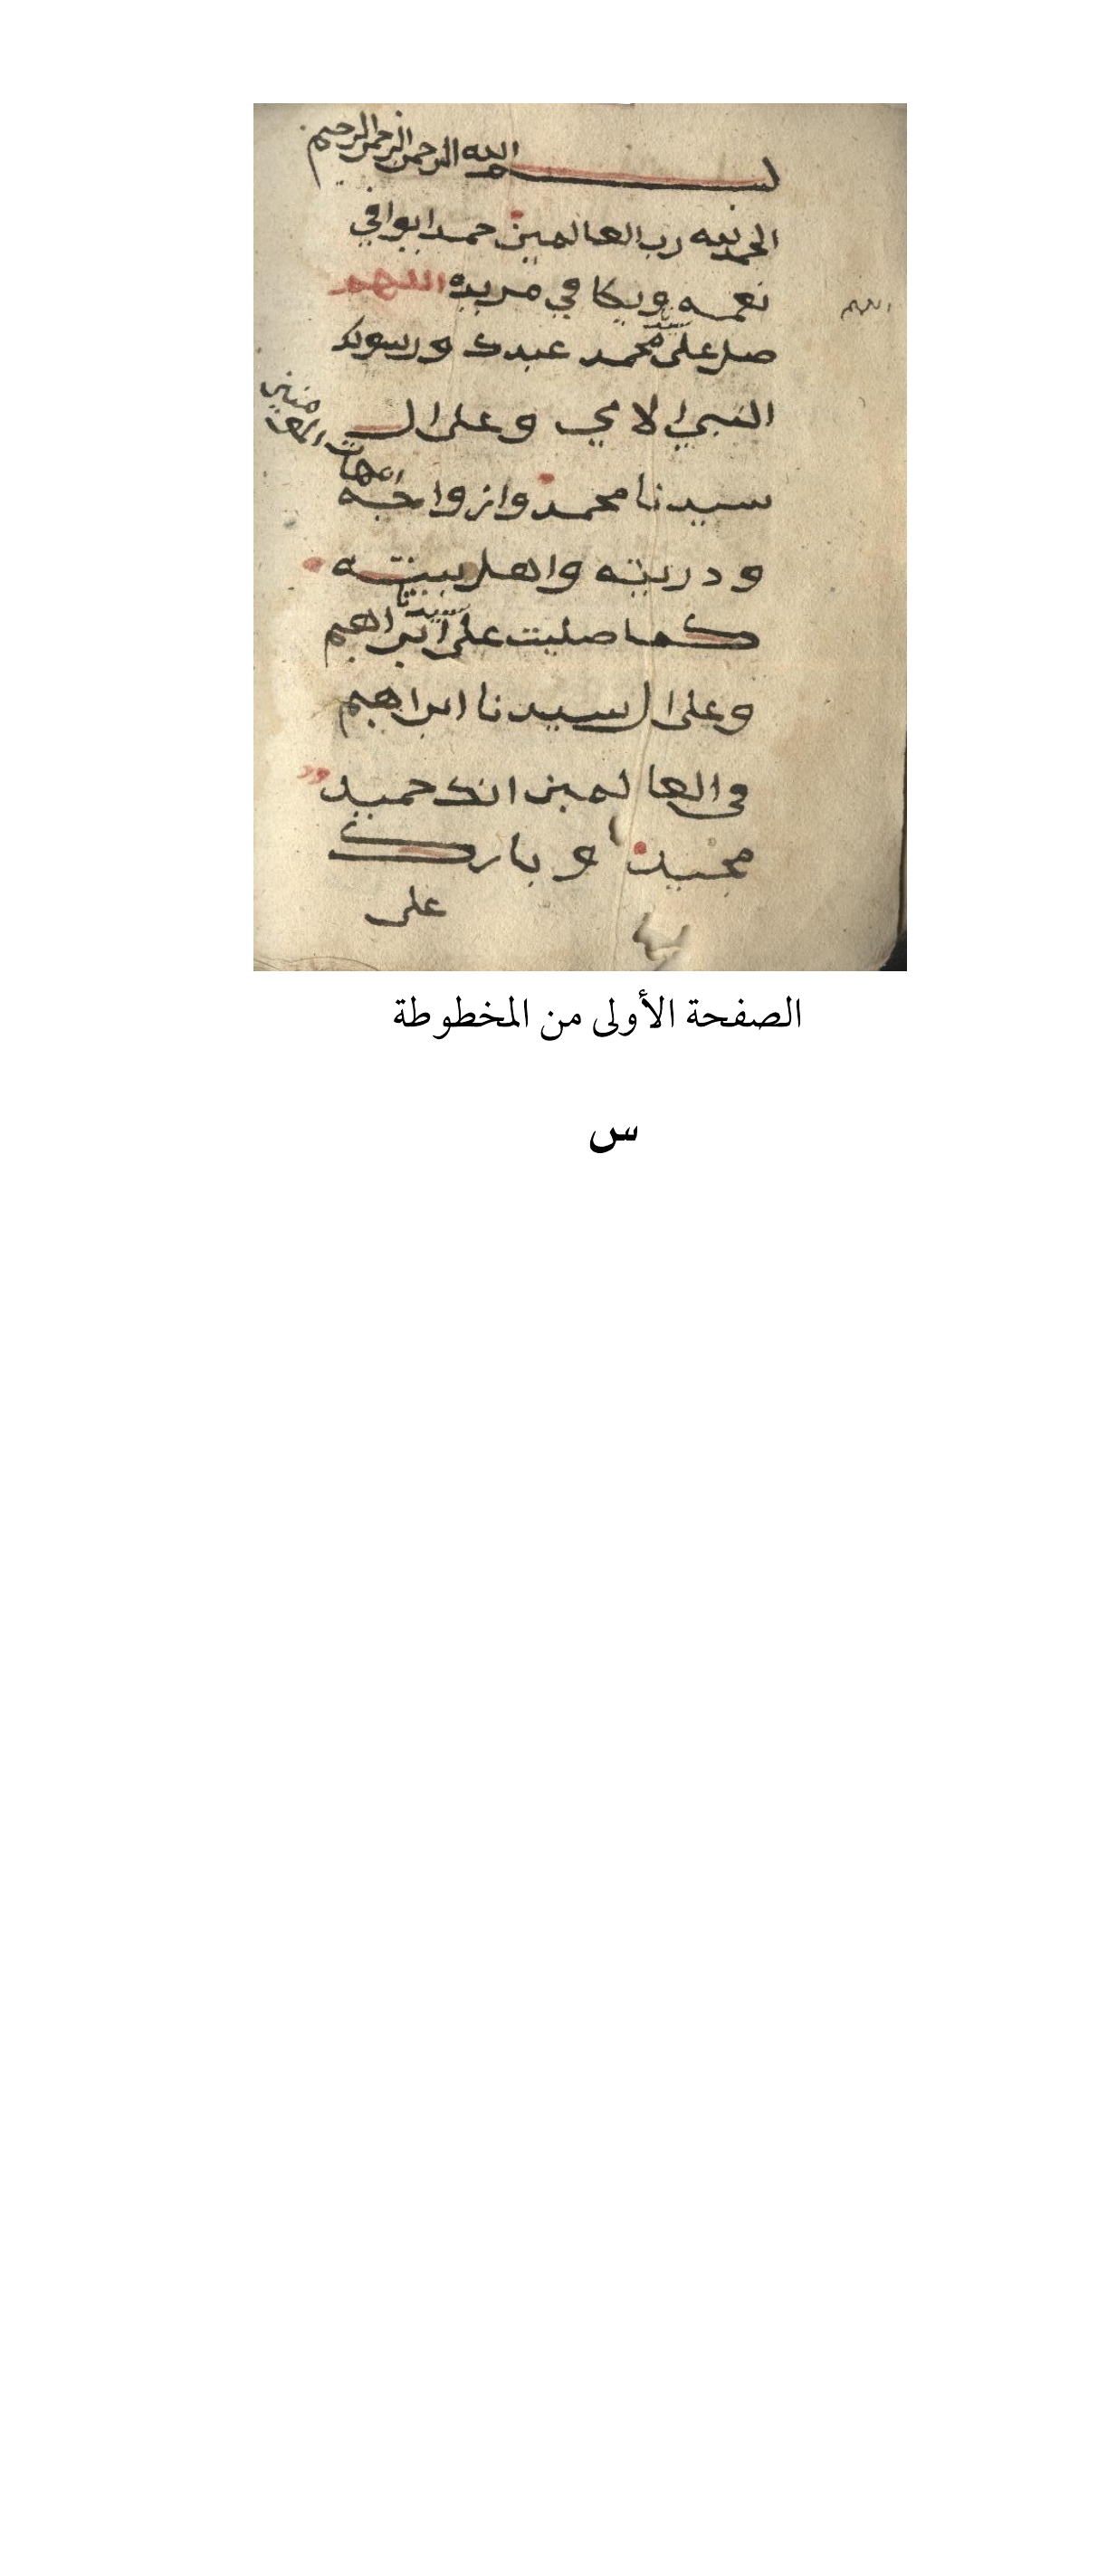 بسم الله الرحمن الرحمن الرحيم
الحمد لله رب العالمين حمدا يوافي
نعمه ويكافي مزيده اللهم
اللهم
صل على سيدنا محمد عبدك ورسولك
النبي الامي وعلى ال
سيدنا محمد وازواجه امهات المؤمنين
وذريته واهل بيته
كما صليت على سيدنا ابراهيم
وعلى ال سيدنا ابراهيم
في العالمين انك حميد
مجيد وبارك
على
الصفحة الأولى من المخطوطة
س